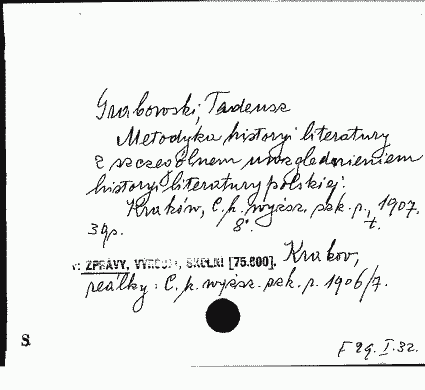 Grabowski, Tadeusz
Metodyka historyi literatury
z szczególnem uwzględnieniem
historyi literatury polskiej.
Kraków, C. k. wyższ. szk. p., 1907.
8° t.
39 p.
v: ZPRÁVY, VÝROČNÍ, ŠKOLNÍ [75.800]. Krakov,
reálky: C. k. wyższ. szk. p. 1906/7.
S
F 29. I. 32.